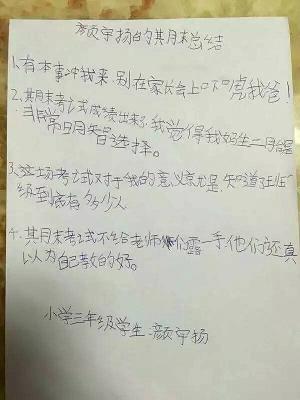 颜宇扬的期末总结
1、有本事冲我来,别在家长会上吓唬我爸!
2、期末考试成绩出来了.我觉得我妈生二胎是
非常明智选择。
3、这场考试对于我的意义就是:知道了班
级到底有多少人
4、期末考试不给老师们露一手,他们还真
以为自己教的好。
小学三年级学生:颜宇扬